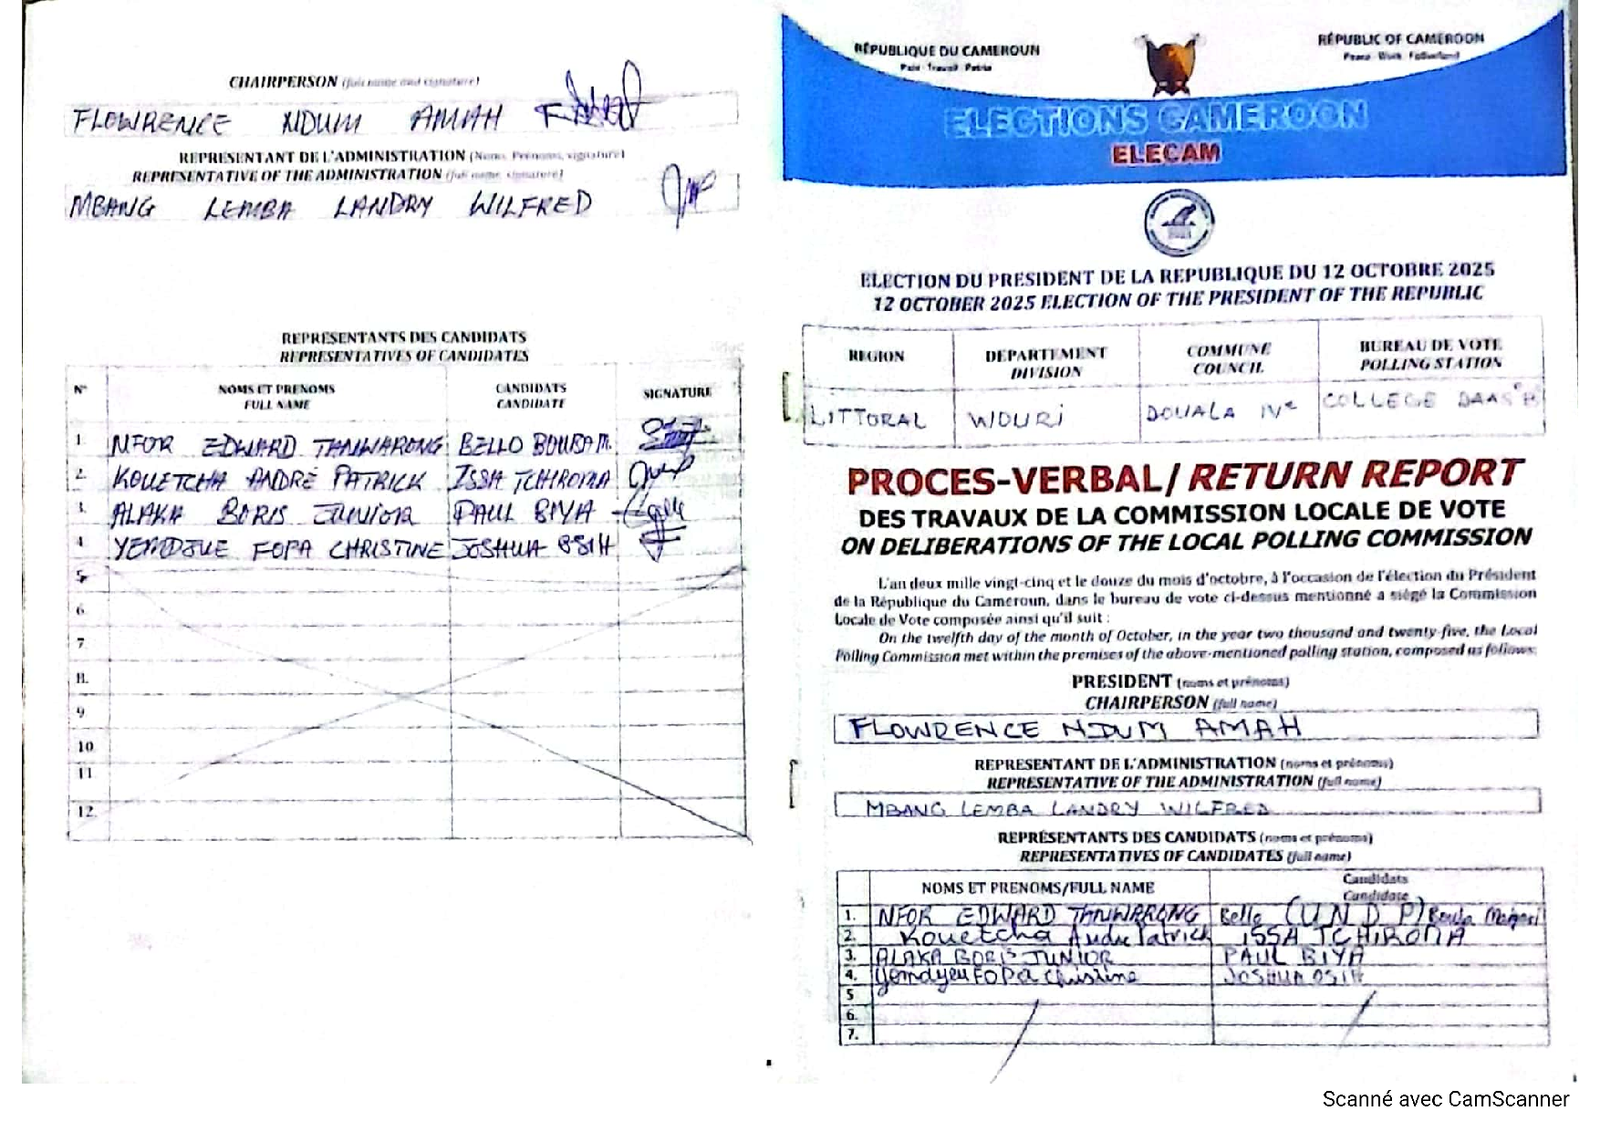 CHAIRPERSON (full name and signature)
FLOWRENCE NDUM AMAH
REPRESENTANT DE L'ADMINISTRATION (Noms, Prénoms, signature)
REPRESENTATIVE OF THE ADMINISTRATION (full name, signature)
MBANG LEMBA LANDRY WILFRED
REPRÉSENTANTS DES CANDIDATS
REPRESENTATIVES OF CANDIDATES
N° NOMS ET PRENOMS CANDIDATS SIGNATURE
FULL NAME CANDIDATE
1. NFOR EDWARD TANWARONG BELLO BOUBA M.
2. KOUETCHA ANDRÉ PATRICK ISSA TCHIROMA
3. ALAKA BORIS JUNIOR PAUL BIYA
4. YEMDJUE FOPA CHRISTINE JOSHUA OSIH
5.
6.
7.
8.
9
10
11
12.
RÉPUBLIQUE DU CAMEROUN RÉPUBLIC OF CAMEROON
Paix - Travail - Patrie Peace - Work - Fatherland
ELECTIONS CAMEROON
ELECAM
ELECTION DU PRESIDENT DE LA REPUBLIQUE DU 12 OCTOBRE 2025
12 OCTOBER 2025 ELECTION OF THE PRESIDENT OF THE REPUBLIC
REGION DEPARTEMENT COMMUNE BUREAU DE VOTE
DIVISION COUNCIL POLLING STATION
LITTORAL WOURI DOUALA IVe COLLEGE DAAS B
PROCES-VERBAL/ RETURN REPORT
DES TRAVAUX DE LA COMMISSION LOCALE DE VOTE
ON DELIBERATIONS OF THE LOCAL POLLING COMMISSION
L'an deux mille vingt-cinq et le douze du mois d'octobre, à l'occasion de l'élection du Président
de la République du Cameroun, dans le bureau de vote ci-dessus mentionné a siégé la Commission
Locale de Vote composée ainsi qu'il suit :
On the twelfth day of the month of October, in the year two thousand and twenty-five, the Local
Polling Commission met within the premises of the above-mentioned polling station, composed as follows:
PRESIDENT (noms et prénoms)
CHAIRPERSON (full name)
FLOWRENCE NDUM AMAH
REPRESENTANT DE L'ADMINISTRATION (noms et prénoms)
REPRESENTATIVE OF THE ADMINISTRATION (full name)
MBANG LEMBA LANDRY WILFRED
REPRÉSENTANTS DES CANDIDATS (noms et prénoms)
REPRESENTATIVES OF CANDIDATES (full name)
NOMS ET PRENOMS/FULL NAME Candidats
Candidate
1. NFOR EDWARD TANWARONG Bello (U N D P) Bouba Maigari
2. Kouetcha Andre Patrick ISSA TCHIROMA
3. ALAKA BORIS JUNIOR PAUL BIYA
4. FOPA Christine JOSHUA OSIH
5
6.
7.
Scanné avec CamScanner